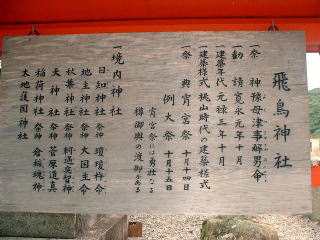 飛鳥神社
一祭神 豫母津事解男命
一勧請 寛永元年十月
一建築年代 元禄三年十月
一建築様式 桃山時代の建築様式
一祭典 宵宮祭 十月十四日
例大祭 十月十五日
宵宮祭には勇壮なる
樽御輿の渡御がある
一境内神社
日知神社 祭神 瓊瓊杵命
地主神社 祭神 大国主命
秋葉神社 祭神 軻遇突智神
天神社 祭神 菅原道真
稲荷神社 祭神 倉稲魂神
太地護国神社